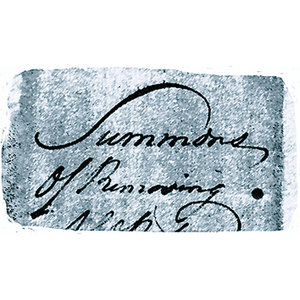 Summons
Of Removing